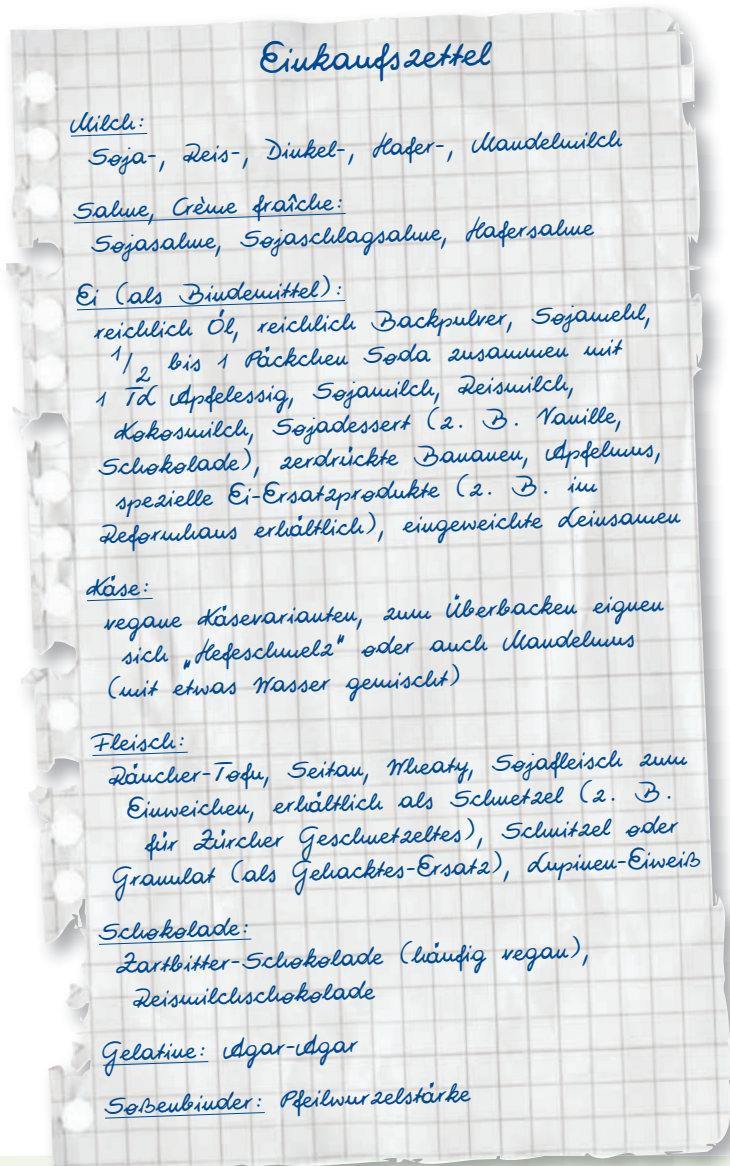 Einkaufszettel
Milch:
Soja-, Reis-, Dinkel-, Hafer-, Mandelmilch
Sahne, Crème fraîche:
Sojasahne, Sojaschlagsahne, Hafersahne
Ei (als Bindemittel):
reichlich Öl, reichlich Backpulver, Sojamehl,
1/2 bis 1 Päckchen Soda zusammen mit
1 TL Apfelessig, Sojamilch, Reismilch,
Kokosmilch, Sojadessert (z. B. Vanille,
Schokolade), zerdrückte Bananen, Apfelmus,
spezielle Ei-Ersatzprodukte (z. B. im
Reformhaus erhältlich), eingeweichte Leinsamen
Käse:
vegane Käsevarianten, zum Überbacken eignen
sich „Hefeschmelz" oder auch Mandelmus
(mit etwas Wasser gemischt)
Fleisch:
Räucher-Tofu, Seitan, Wheaty, Sojafleisch zum
Einweichen, erhältlich als Schnetzel (z. B.
für Zürcher Geschnetzeltes), Schnitzel oder
Granulat (als Gehacktes-Ersatz), Lupinen-Eiweiß
Schokolade:
Zartbitter-Schokolade (häufig vegan),
Reismilchschokolade
Gelatine: Agar-Agar
Soßenbinder: Pfeilwurzelstärke